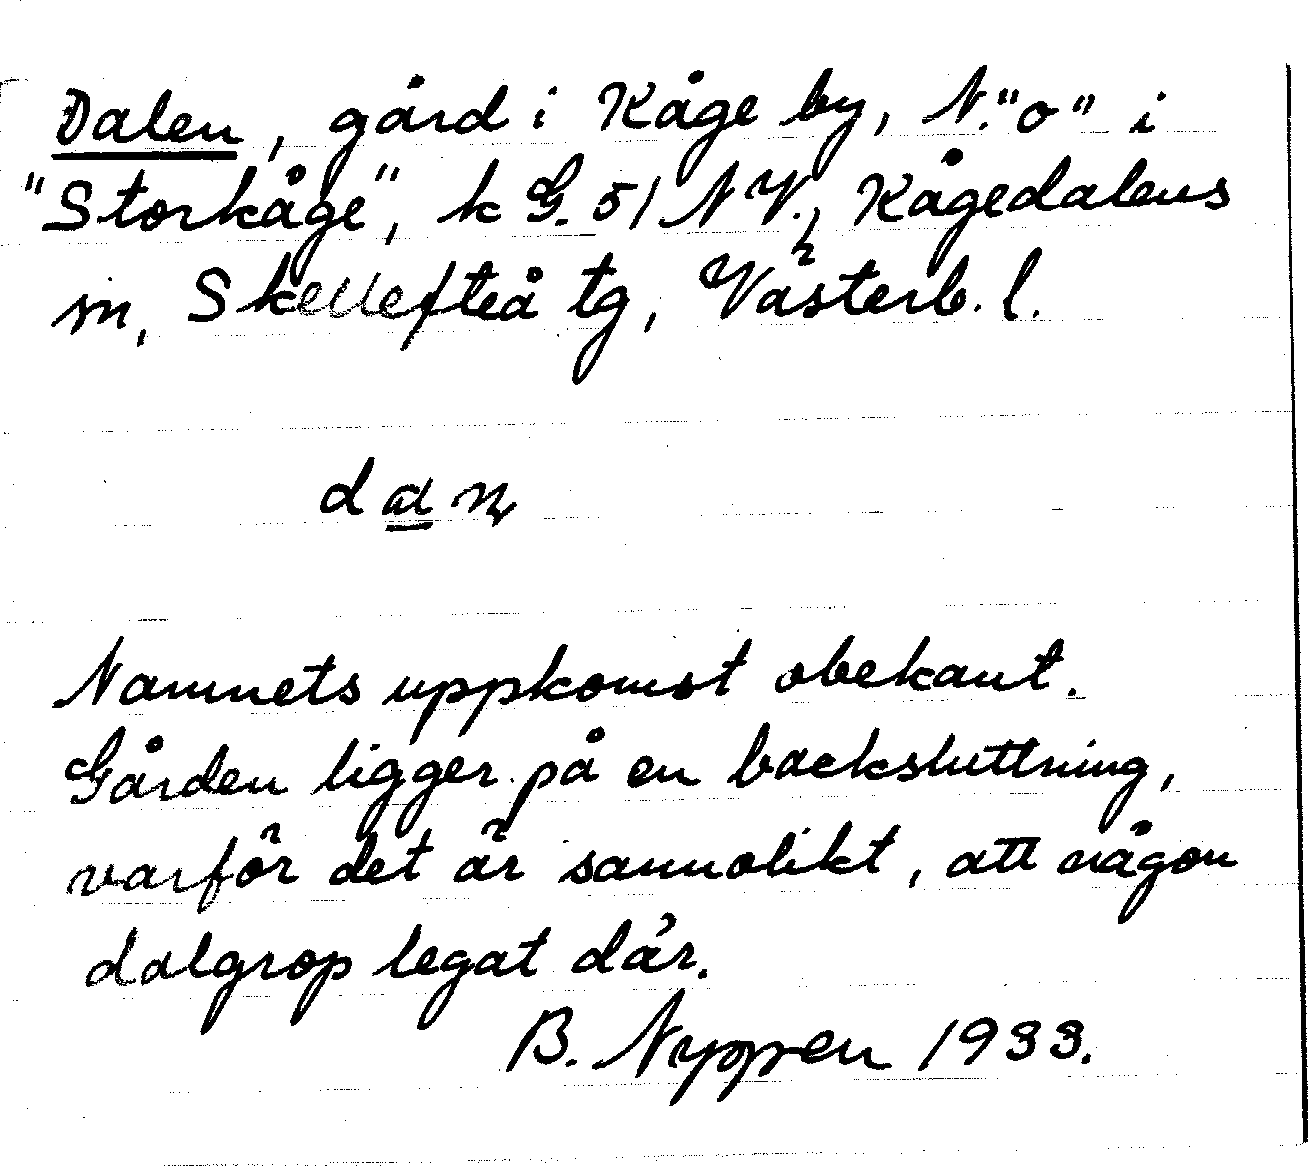 Dalen, gård i Kåge by, N. "o" i
"Storkåge", k G. 51 NV., Kågedalens
sn, Skellefteå tg, Västerb. l.
Namnets uppkomst obekant.
Gården ligger på en backsluttning,
varför det är sannolikt, att någon
dalgrop legat där.
B. Nyppen 1933.